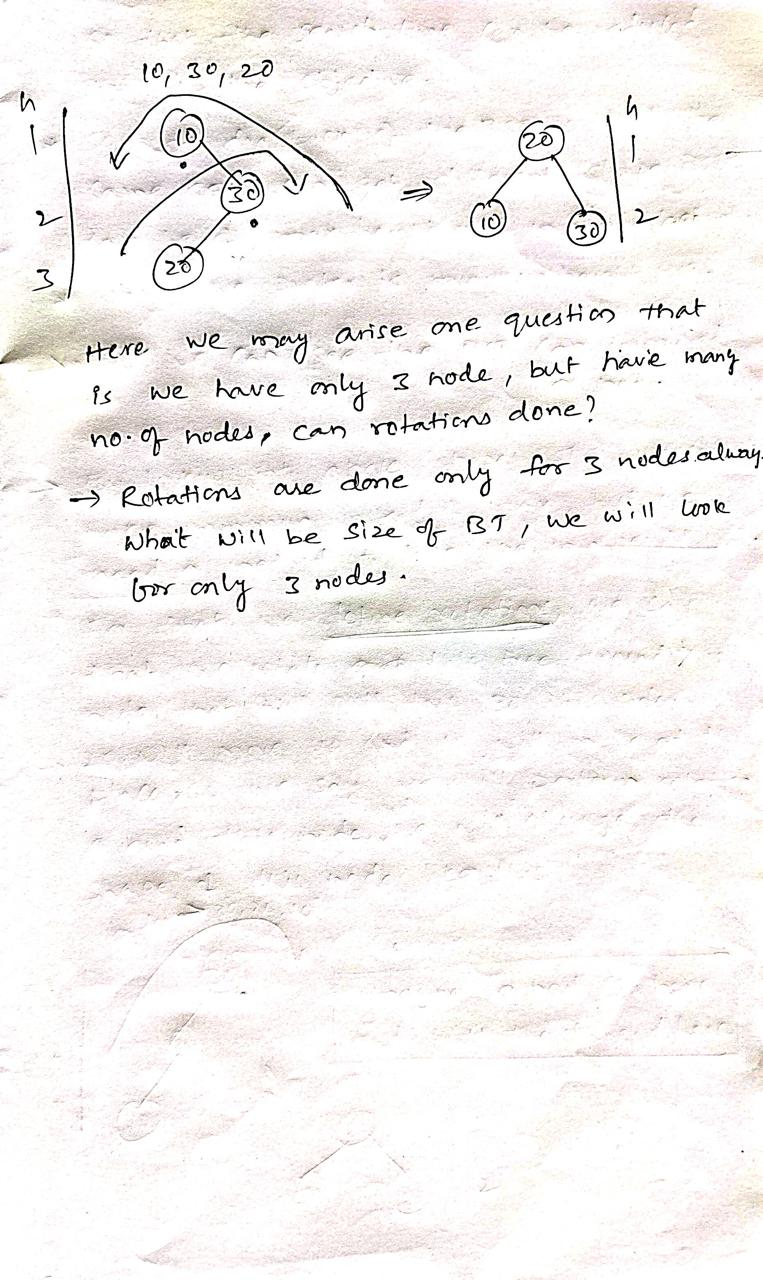 10, 30, 20
h
1
2
3
10
30
20
⇒
20
10
30
h
1
2
Here we may arise one question that
is we have only 3 node, but have many
no. of nodes, can rotations done?
→ Rotations are done only for 3 nodes alway.
What will be size of BT, we will look
for only 3 nodes.